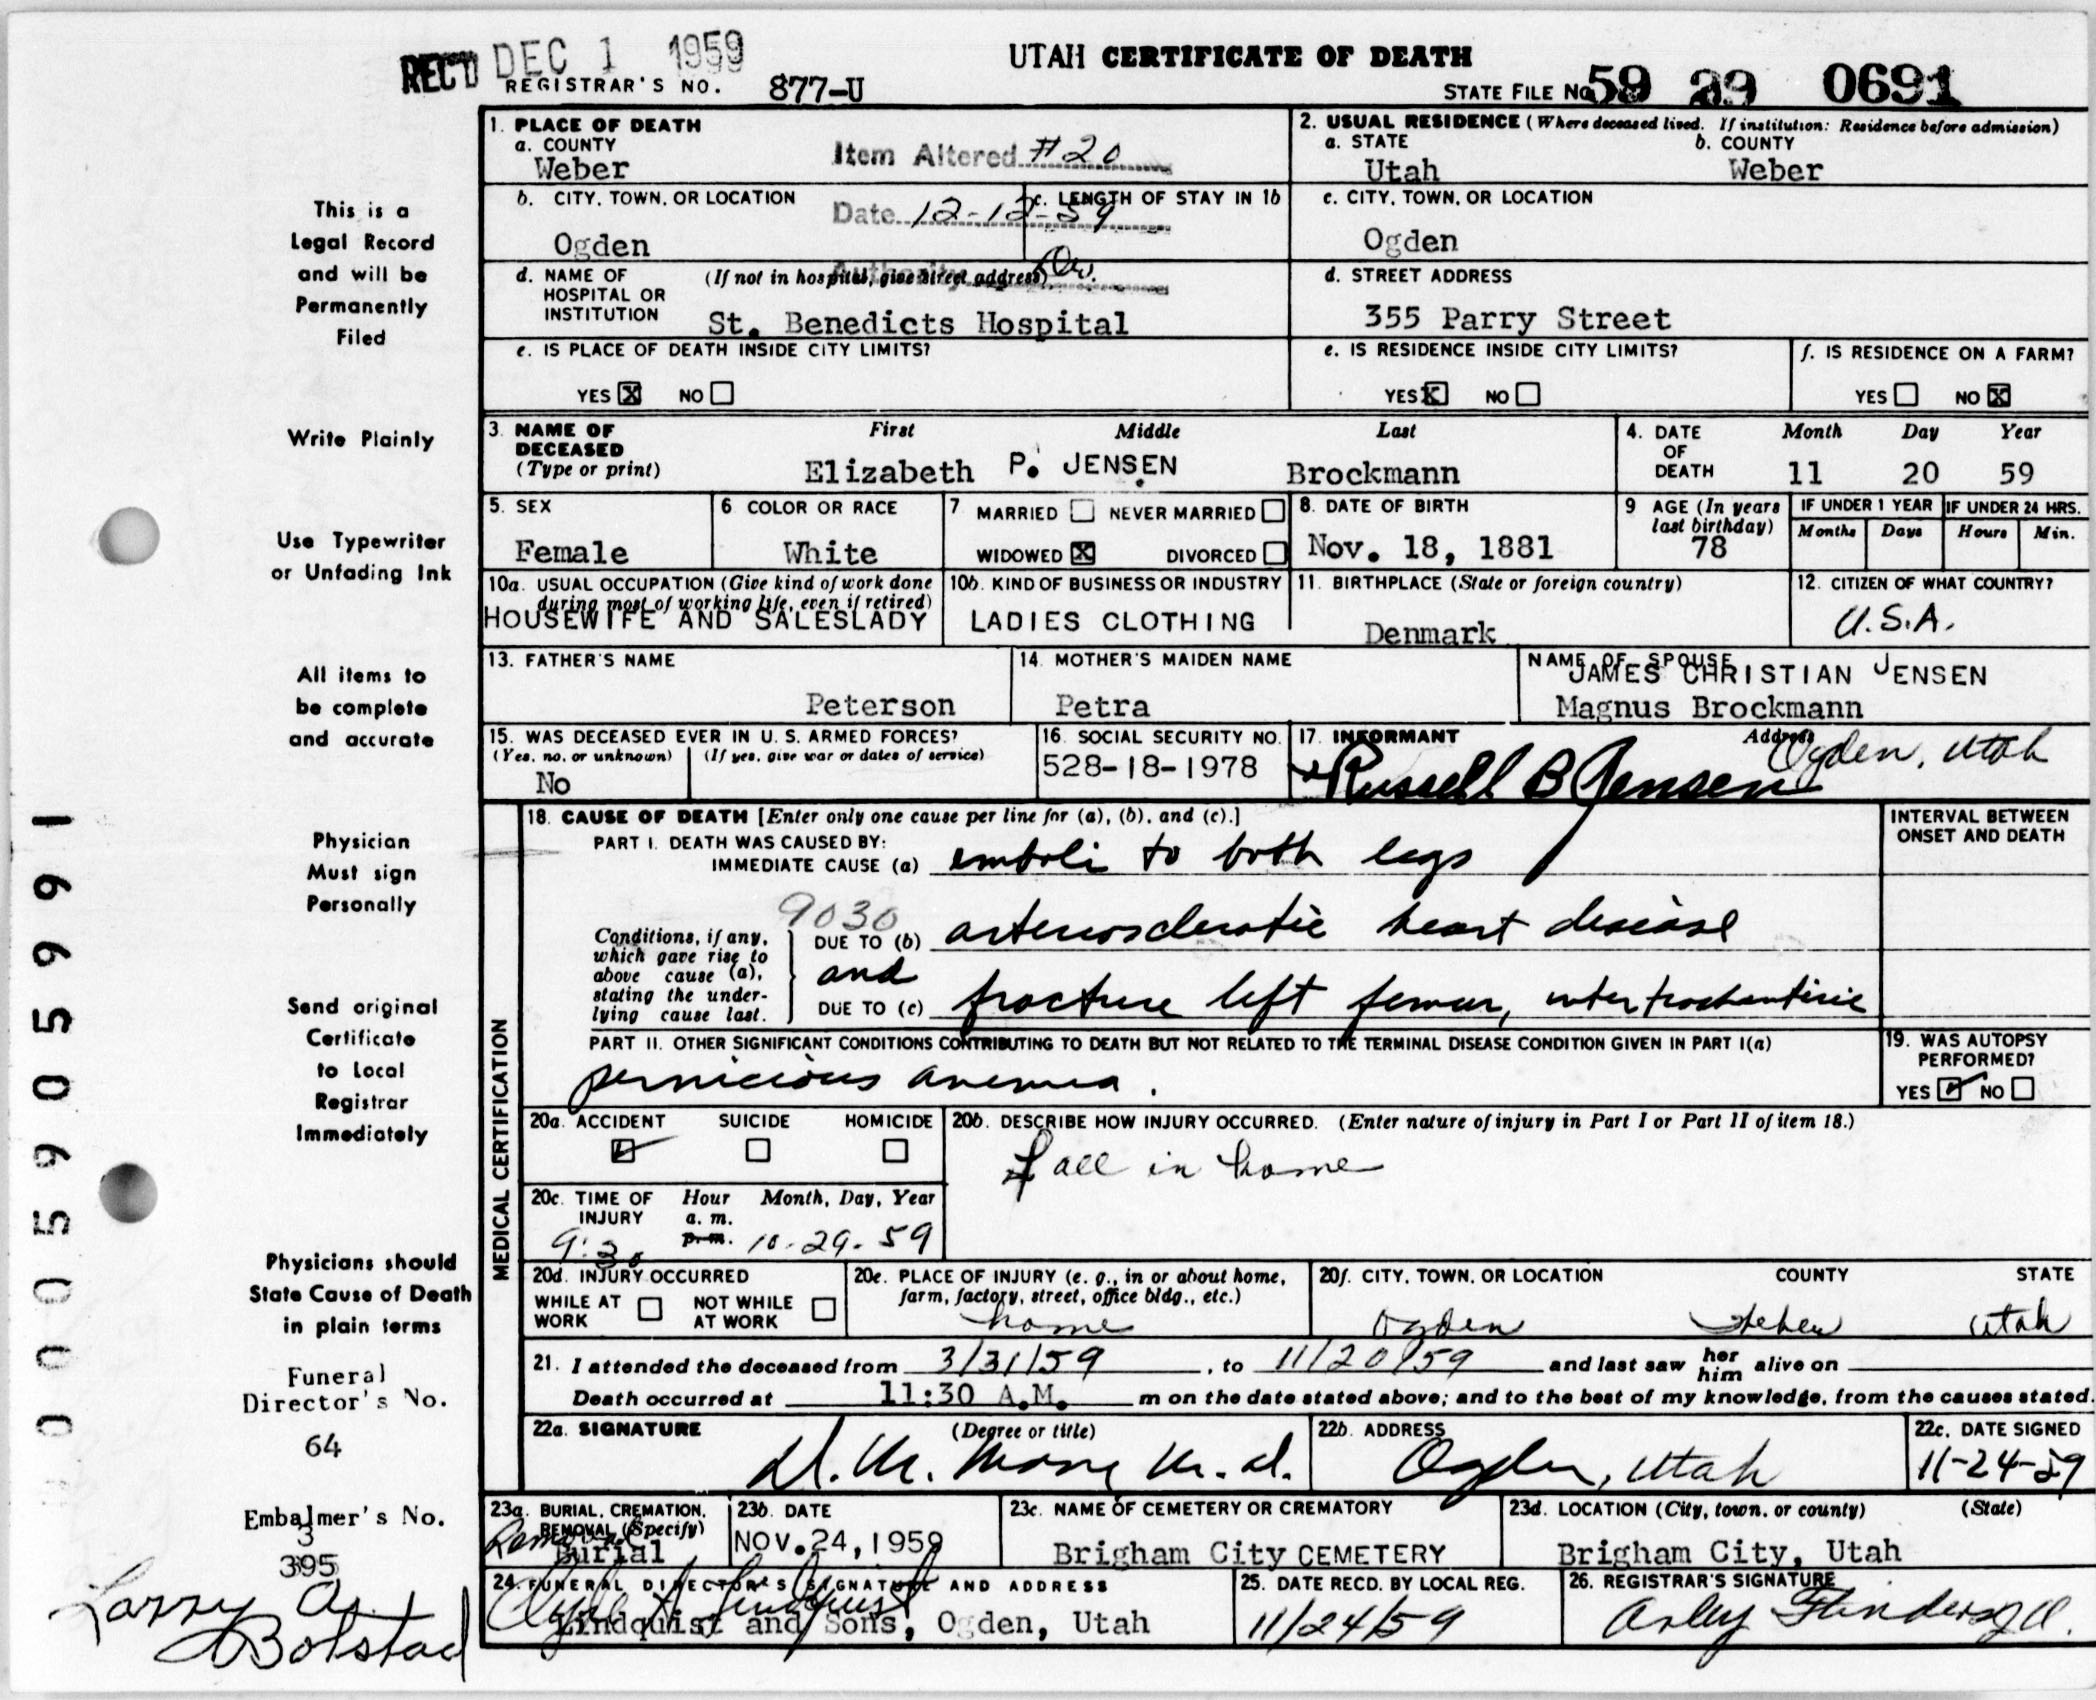 REC'D DEC 1 1959
UTAH CERTIFICATE OF DEATH
REGISTRAR'S NO. 877-U
STATE FILE NO. 59 29 0691
1. PLACE OF DEATH
a. COUNTY
Weber
Item Altered #20
2. USUAL RESIDENCE (Where deceased lived. If institution: Residence before admission)
a. STATE b. COUNTY
Utah Weber
b. CITY, TOWN, OR LOCATION
Ogden
Date 12-12-59
c. LENGTH OF STAY IN 1b
c. CITY, TOWN, OR LOCATION
Ogden
d. NAME OF HOSPITAL OR INSTITUTION (If not in hospital, give street address)
Authority Dr.
St. Benedicts Hospital
d. STREET ADDRESS
355 Parry Street
e. IS PLACE OF DEATH INSIDE CITY LIMITS?
YES X NO
e. IS RESIDENCE INSIDE CITY LIMITS?
YES X NO
f. IS RESIDENCE ON A FARM?
YES NO X
3. NAME OF DECEASED (Type or print)
First Middle Last
Elizabeth P. JENSEN Brockmann
4. DATE OF DEATH Month Day Year
11 20 59
5. SEX
Female
6 COLOR OR RACE
White
7 MARRIED NEVER MARRIED
WIDOWED X DIVORCED
8. DATE OF BIRTH
Nov. 18, 1881
9 AGE (In years last birthday)
78
IF UNDER 1 YEAR IF UNDER 24 HRS.
Months Days Hours Min.
10a. USUAL OCCUPATION (Give kind of work done during most of working life, even if retired)
HOUSEWIFE AND SALESLADY
10b. KIND OF BUSINESS OR INDUSTRY
LADIES CLOTHING
11. BIRTHPLACE (State or foreign country)
Denmark
12. CITIZEN OF WHAT COUNTRY?
U.S.A.
13. FATHER'S NAME
Peterson
14. MOTHER'S MAIDEN NAME
Petra
NAME OF SPOUSE
JAMES CHRISTIAN JENSEN
Magnus Brockmann
15. WAS DECEASED EVER IN U. S. ARMED FORCES?
(Yes, no, or unknown) (If yes, give war or dates of service)
No
16. SOCIAL SECURITY NO.
528-18-1978
17. INFORMANT Address
Russell B Jensen Ogden, Utah
18. CAUSE OF DEATH [Enter only one cause per line for (a), (b), and (c).]
INTERVAL BETWEEN ONSET AND DEATH
PART I. DEATH WAS CAUSED BY:
IMMEDIATE CAUSE (a) emboli to both legs
9030
Conditions, if any, which gave rise to above cause (a), stating the underlying cause last.
DUE TO (b) arteriosclerotic heart disease
and
DUE TO (c) fracture left femur, intertrochanteric
PART II. OTHER SIGNIFICANT CONDITIONS CONTRIBUTING TO DEATH BUT NOT RELATED TO THE TERMINAL DISEASE CONDITION GIVEN IN PART I(a)
pernicious anemia.
19. WAS AUTOPSY PERFORMED?
YES ✓ NO
20a. ACCIDENT SUICIDE HOMICIDE
✓
20b. DESCRIBE HOW INJURY OCCURRED. (Enter nature of injury in Part I or Part II of item 18.)
fall in home
20c. TIME OF INJURY Hour Month, Day, Year
a. m.
p. m.
9:30 10-29-59
20d. INJURY OCCURRED
WHILE AT WORK NOT WHILE AT WORK
20e. PLACE OF INJURY (e. g., in or about home, farm, factory, street, office bldg., etc.)
home
20f. CITY, TOWN, OR LOCATION COUNTY STATE
Ogden Weber Utah
21. I attended the deceased from 3/31/59, to 11/20/59 and last saw her him alive on
Death occurred at 11:30 A.M. m on the date stated above; and to the best of my knowledge, from the causes stated.
22a. SIGNATURE (Degree or title)
M.D.
22b. ADDRESS
Ogden, Utah
22c. DATE SIGNED
11-24-59
23a. BURIAL, CREMATION, REMOVAL (Specify)
Removal
Burial
23b. DATE
NOV. 24, 1959
23c. NAME OF CEMETERY OR CREMATORY
Brigham City CEMETERY
23d. LOCATION (City, town, or county) (State)
Brigham City, Utah
24. FUNERAL DIRECTOR'S SIGNATURE AND ADDRESS
Clyde A Lindquist
Lindquist and Sons, Ogden, Utah
25. DATE RECD. BY LOCAL REG.
11/24/59
26. REGISTRAR'S SIGNATURE
Arley Flinders
MEDICAL CERTIFICATION
This is a
Legal Record
and will be
Permanently
Filed
Write Plainly
Use Typewriter
or Unfading Ink
All items to
be complete
and accurate
Physician
Must sign
Personally
Send original
Certificate
to Local
Registrar
Immediately
Physicians should
State Cause of Death
in plain terms
Funeral
Director's No.
64
Embalmer's No.
3
395
Larry A.
Bolstad
0005905991